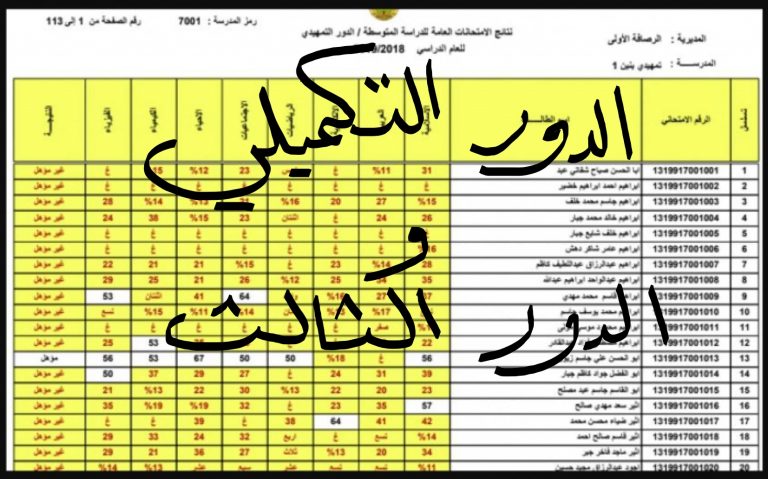 المديرية : الرصافة الأولى
المدرسة : تمهيدي بنين 1
نتائج الامتحانات العامة للدراسة المتوسطة / الدور التمهيدي
للعام الدراسي 2018/
رمز المدرسة : 7001
رقم الصفحة من 1 إلى 113
تسلسل الرقم الامتحاني الاسلامية الرياضيات الاجتماعيات الاحياء الكيمياء الفيزياء النتيجة
الدور التكميلي
و
الدور الثالث
1 1319917001001 ابا الحسن صباح شفاتي عبد 31 %11 غ 23 %12 غ غير مؤهل
2 1319917001002 ابراهيم احمد ابراهيم خضير غ غ غ غ غ غ غ غ غير مؤهل
3 1319917001003 ابراهيم جاسم محمد خلف %15 27 20 %16 %13 %14 28 غير مؤهل
4 1319917001004 ابراهيم خالد محمد جبار 26 24 غ اثنتان 23 %15 38 24 غير مؤهل
5 1319917001005 ابراهيم خلف شايع جبار غ غ غ غ غ غ غ غير مؤهل
6 1319917001006 ابراهيم عامر شاكر دهش غ غ غ غ غ غ غير مؤهل
7 1319917001007 ابراهيم عبدالرزاق عبداللطيف كاظم 28 %14 23 غ %15 21 21 22 غير مؤهل
8 1319917001008 ابراهيم عبدالواحد ابراهيم عبدالله 35 25 %12 26 21 25 29 غير مؤهل
9 1319917001009 قاسم محمد مهدي 27 64 41 اثنتان 53 غير مؤهل
10 1319917001010 محمد يوسف %17 %14 %11 %15 تسع غير مؤهل
11 1319917001011 صفر غ غ غ غ غ غير مؤهل
12 1319917001012 22 53 25 غير مؤهل
13 1319917001013 ابو الحسن علي جاسم 56 غ %18 50 50 67 53 56 مؤهل
14 1319917001014 ابو الفضل جواد كاظم جبار 39 31 24 غ 27 29 37 50 غير مؤهل
15 1319917001015 ابو القاسم جاسم عبد مصلح 23 20 22 %13 30 22 %13 21 غير مؤهل
16 1319917001016 اثير سعد مهدي صالح 57 35 23 غ 32 %19 %19 35 غير مؤهل
17 1319917001017 اثير ضياء محسن محمد 42 41 64 38 غ 39 غ غ غير مؤهل
18 1319917001018 اثير قاسم صالح احمد %14 تسع غ اربع 32 24 33 29 غير مؤهل
19 1319917001019 اثير ماجد فاخر جبر 34 20 %13 ثلاث 27 غ 23 29 غير مؤهل
20 1319917001020 اجود عبدالرزاق مجيد حسين %11 تسع تسع عشر سبع عشر %13 %14 غير مؤهل